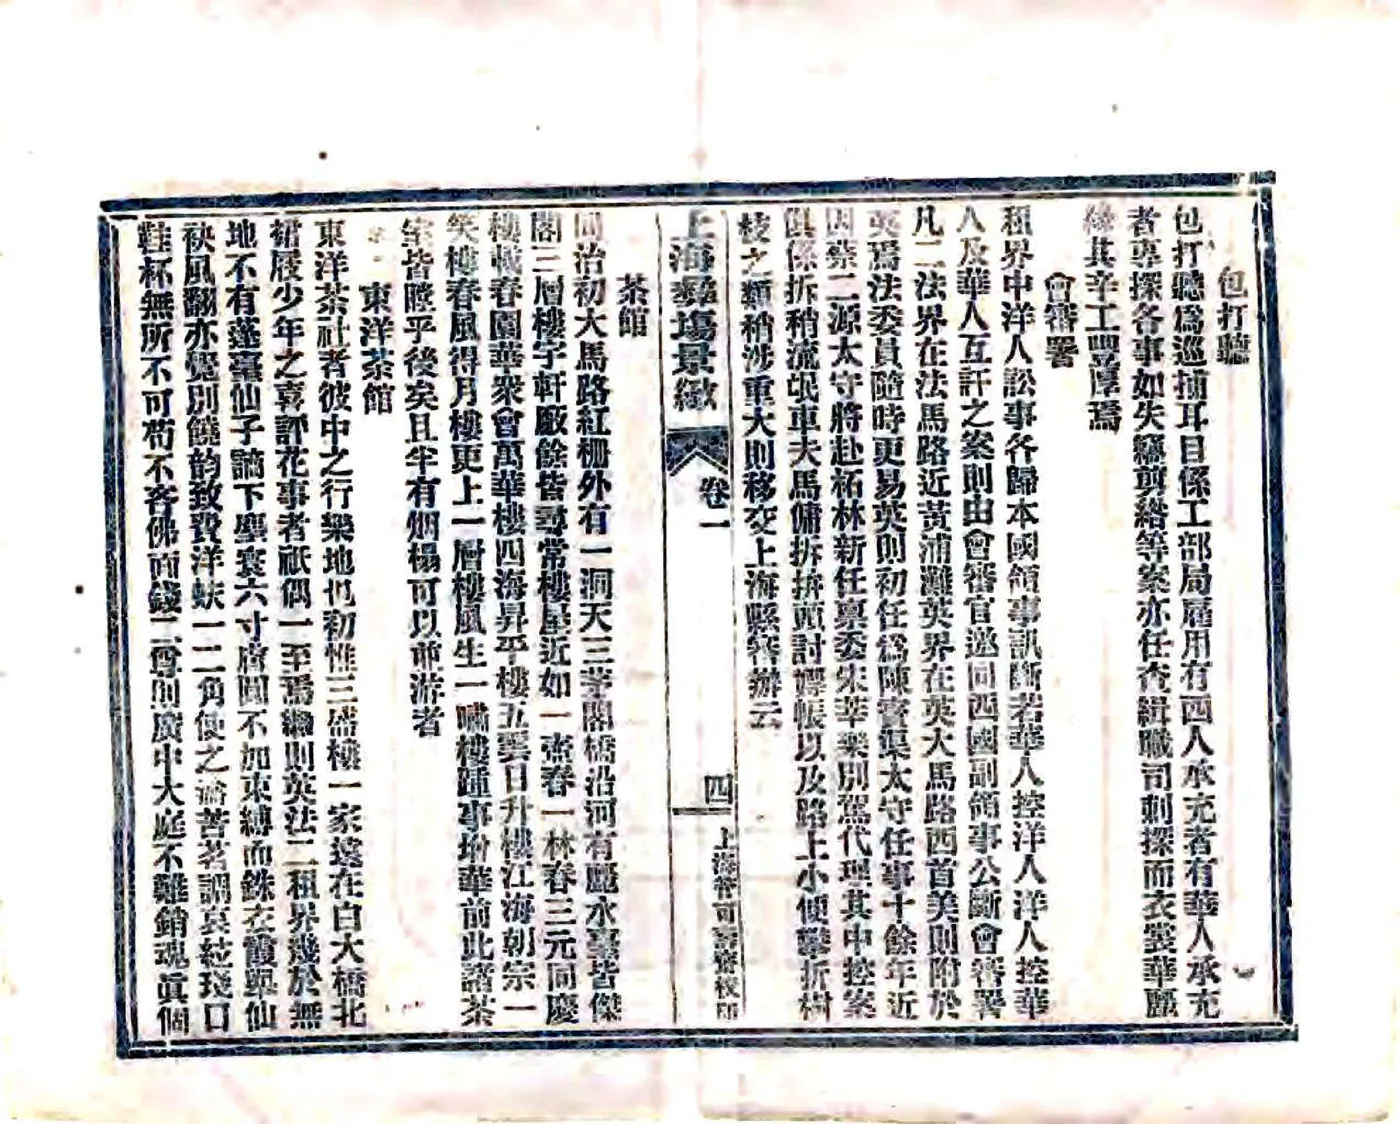 包打聽
包打聽爲巡捕耳目係工部局雇用有四人承充者有華人承充
者專探各事如失竊剪綹等案亦任查緝職司刺探而衣裳華麗
緣其辛工豐厚焉
會審署
租界中洋人訟事各歸本國領事訊斷若華人控洋人洋人控華
人及華人互訐之案則由會審官邀同西國副領事公斷會審署
凡二法界在法馬路近黃浦灘英界在英大馬路西首美則附於
英爲法委員隨時更易英則初任爲陳寶渠太守任事十餘年近
因蔡二源太守將赴柘林新任稟委朱莘樂別駕代理其中控案
俱係拆稍流氓車夫馬傭拆拚頭討嫖帳以及路上小便攀折樹
枝之類稍涉重大則移交上海縣審辦云
上海彝場景緻
卷一
四
上海 可壽齋校印
茶館
同治初大馬路紅栅外有一洞天三茅閣橋沿河有麗水臺皆傑
閣三層樓宇軒廠餘皆尋常樓屋近如一壺春一林春三元同慶
樓載春園華衆會萬華樓四海昇平樓五雲日升樓江海朝宗一
笑樓春風得月樓更上一層樓風生一嘯樓踵事增華前此諸茶
室皆瞠乎後矣且半有烟榻可以遊游者
東洋茶館
東洋茶社者彼中之行樂地也初惟三盛樓一家遠在白大橋北
裙屐少年之喜評花事者祇偶一至焉繼則英法二租界幾於無
地不有蓬臺仙子謫下塵寰六寸膚圓不加束縛而銖衣霞舉仙
袂風翻亦覺別饒韵致費洋蚨一二角使之瀹苦茗調哀絲琖口
鞋杯無所不可苟不吝佛面錢二尊則廣中大庭不難銷魂眞個